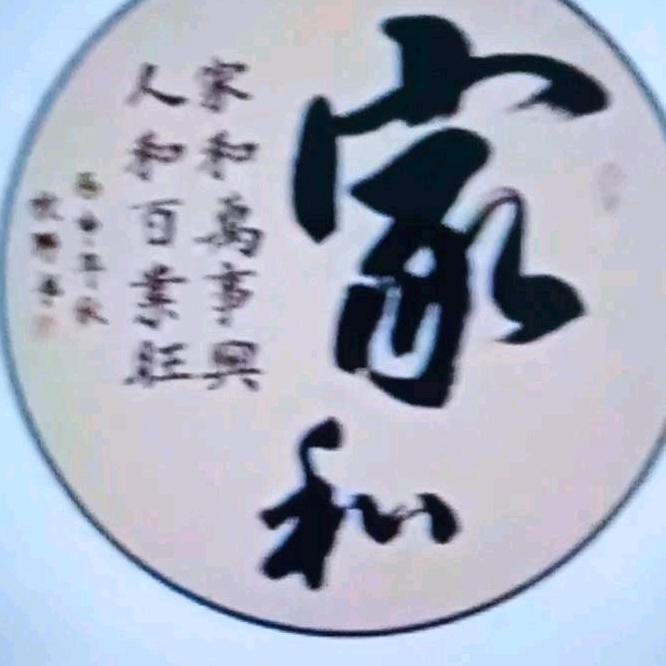 家和
家和萬事興
人和百業旺